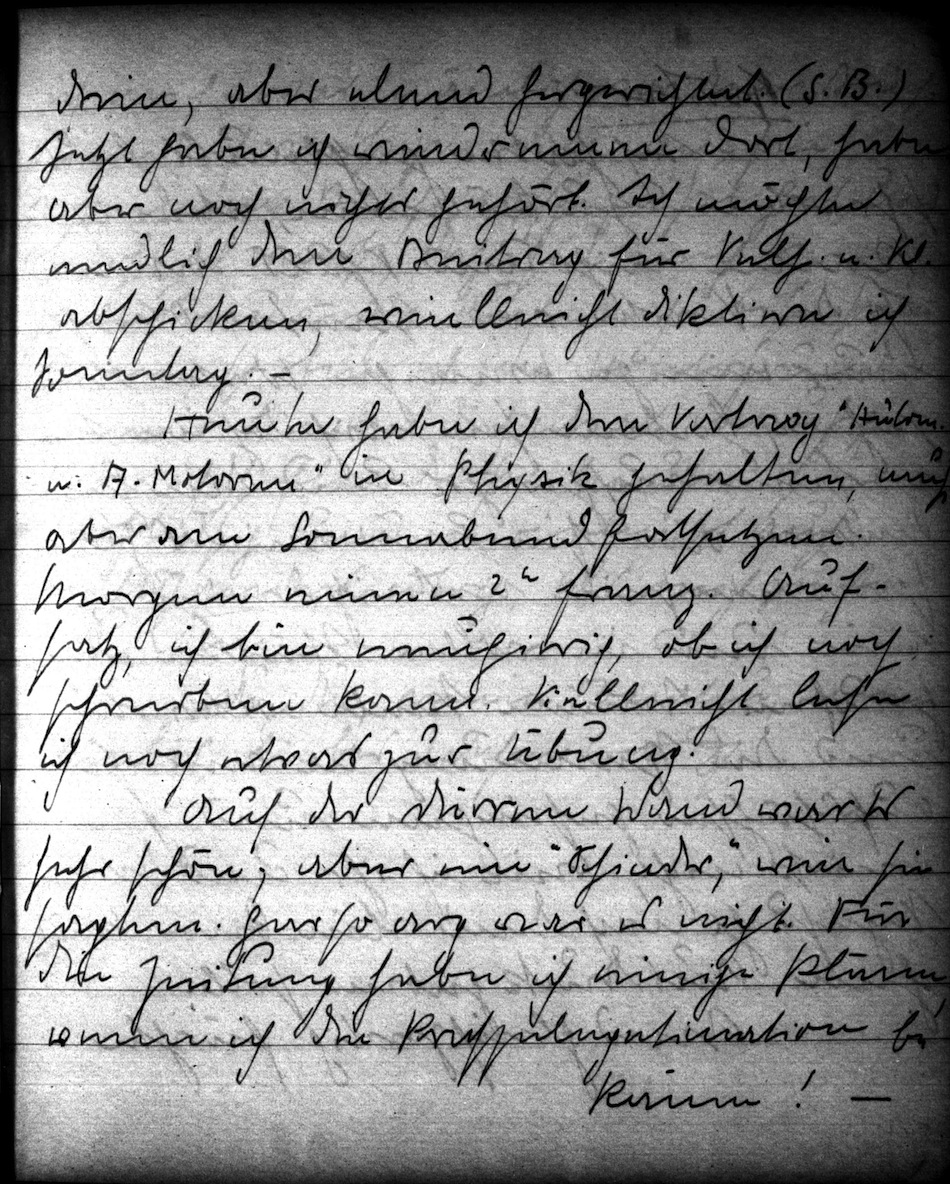 drin, aber elend hergerichtet. (S. B.)
Jetzt habe ich wieder einen dort, habe
aber noch nichts gehört. Ich möchte
endlich den Beitrag für V. u. Kl.
abschicken, vielleicht diktiere ich
Sonntag. –
Heute habe ich den Vortrag "
u. A. Motoren" in Physik gehalten, muß
aber am Sonnabend fortsetzen.
Morgen einen 2h franz. Auf-
satz, ich bin neugierig, ob ich noch
schreiben kann. Vielleicht lese
ich noch etwas zur Übung.
Auf der dürren Wand war es
sehr schön, aber ein "Schinder," wie sie
sagten. Gar so arg war es nicht. Für
die Zeitung habe ich einige Pläne,
wenn ich die Presselegitimation be
käme! –